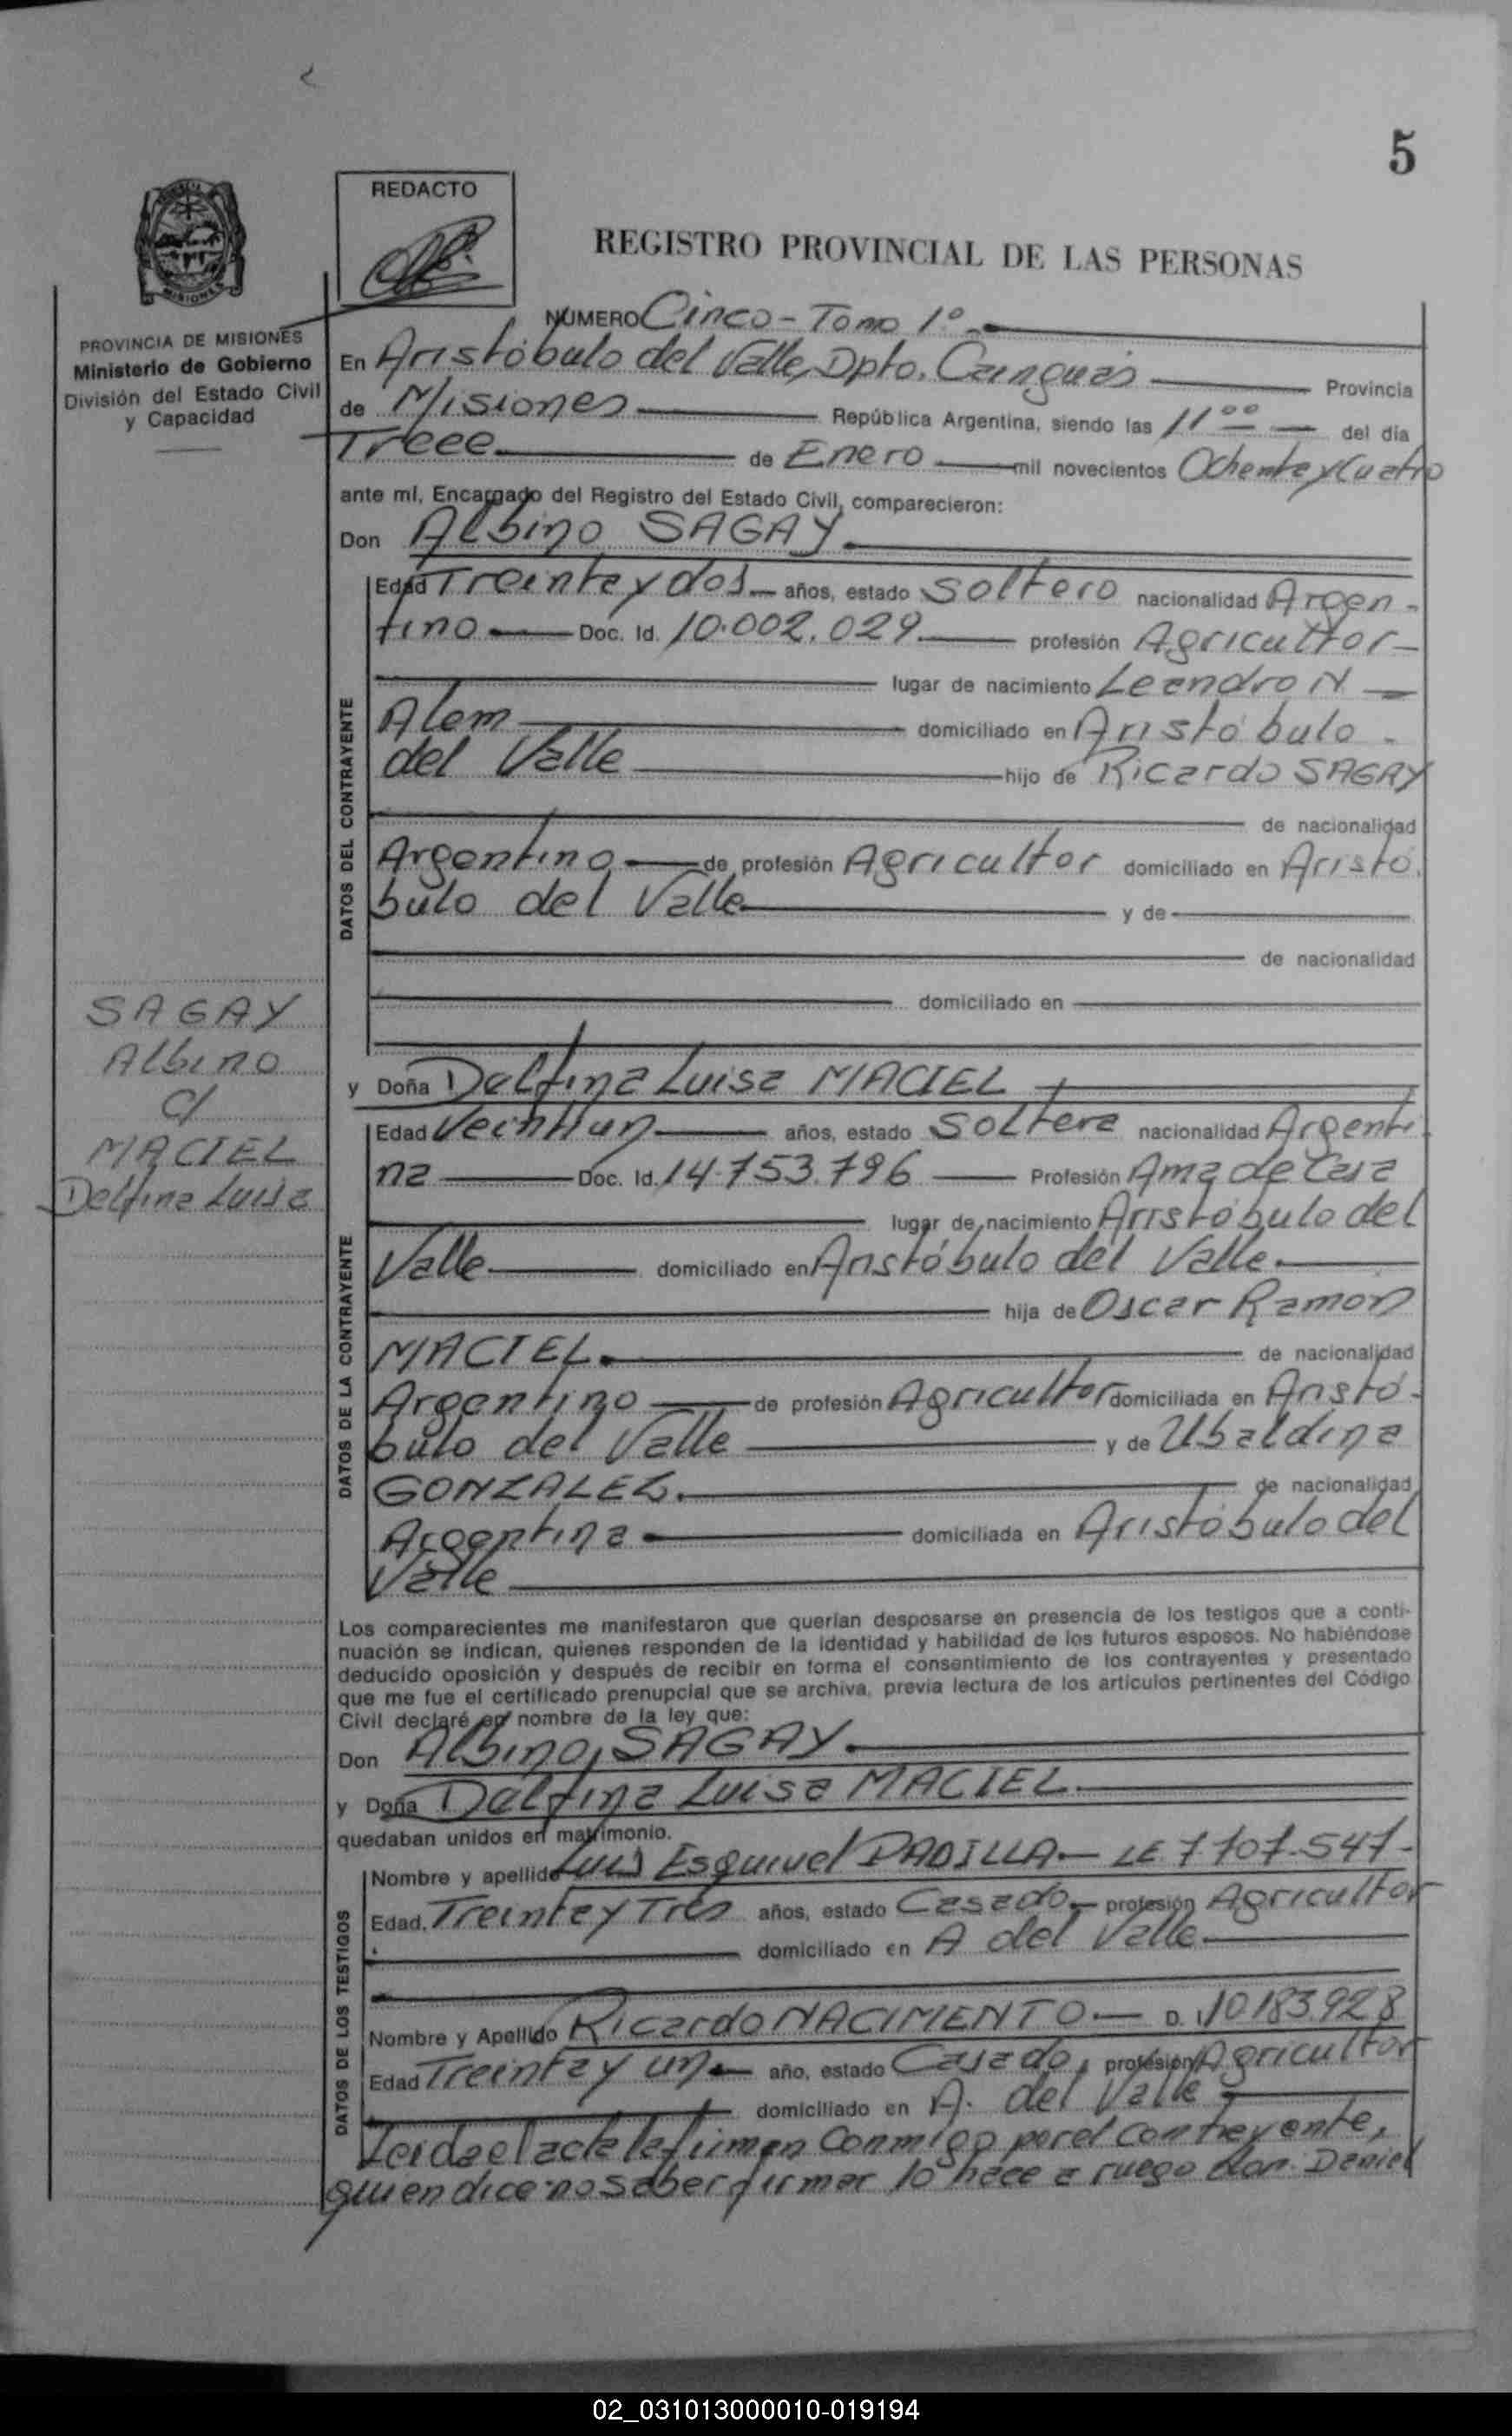 5
REDACTO
REGISTRO PROVINCIAL DE LAS PERSONAS
MISIONES
PROVINCIA DE MISIONES
Ministerio de Gobierno
División del Estado Civil
y Capacidad
NUMERO Cinco - Tomo 1º
En Aristóbulo del Valle, Dpto. Cainguás Provincia
de Misiones República Argentina, siendo las 11 00 del día
Trece de Enero mil novecientos Ochenta y Cuatro
ante mí, Encargado del Registro del Estado Civil, comparecieron:
Don Albino SAGAY.
DATOS DEL CONTRAYENTE
Edad Treinta y dos años, estado Soltero nacionalidad Argen-
tino Doc. Id. 10.002.029 profesión Agricultor
lugar de nacimiento Leandro N
Alem domiciliado en Aristóbulo
del Valle hijo de Ricardo SAGAY
de nacionalidad
Argentino de profesión Agricultor domiciliado en Aristó
bulo del Valle y de
de nacionalidad
domiciliado en
SAGAY
Albino
c/
MACIEL
Delfina Luisa
y Doña Delfina Luisa MACIEL
DATOS DE LA CONTRAYENTE
Edad Veintiun años, estado Soltera nacionalidad Argenti
na Doc. Id. 14.753.796 Profesión Ama de Casa
lugar de nacimiento Aristóbulo del
Valle domiciliado en Aristóbulo del Valle.
hija de Oscar Ramon
MACIEL. de nacionalidad
Argentino de profesión Agricultor domiciliada en Aristó-
bulo del Valle y de Ubaldina
GONZALEZ. de nacionalidad
Argentina domiciliada en Aristóbulo del
Valle
Los comparecientes me manifestaron que querían desposarse en presencia de los testigos que a conti-
nuación se indican, quienes responden de la identidad y habilidad de los futuros esposos. No habiéndose
deducido oposición y después de recibir en forma el consentimiento de los contrayentes y presentado
que me fue el certificado prenupcial que se archiva, previa lectura de los artículos pertinentes del Código
Civil declaré en nombre de la ley que:
Don Albino SAGAY.
y Doña Delfina Luisa MACIEL
quedaban unidos en matrimonio.
DATOS DE LOS TESTIGOS
Nombre y apellido Luis Esquivel PADILLA - LE 7707.547-
Edad. Treinta y Tres años, estado Casado profesión Agricultor
domiciliado en A del Valle
Nombre y Apellido Ricardo NACIMIENTO - D. I 10183.928
Edad Treinta y un año, estado Casado, profesión Agricultor
domiciliado en A. del Valle
Leida el acta la firman conmigo por el contrayente,
quien dice no saber firmar lo hace a ruego don Daniel
02_031013000010-019194